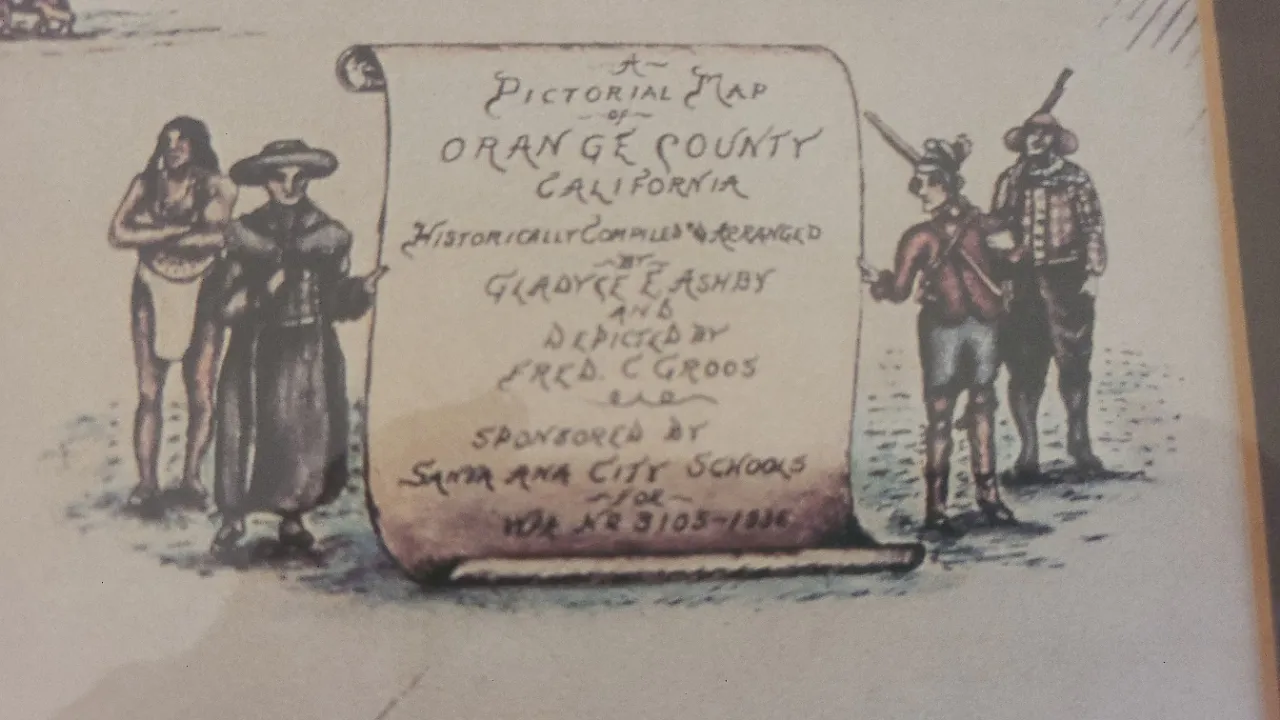 A
PICTORIAL MAP
OF
ORANGE COUNTY
CALIFORNIA
HISTORICALLY COMPILED & ARRANGED
BY
GLADYCE E ASHBY
AND
DEPICTED BY
FRED. C GROOS
SPONSORED BY
SANTA ANA CITY SCHOOLS
FOR
WPA NO 3105-1936